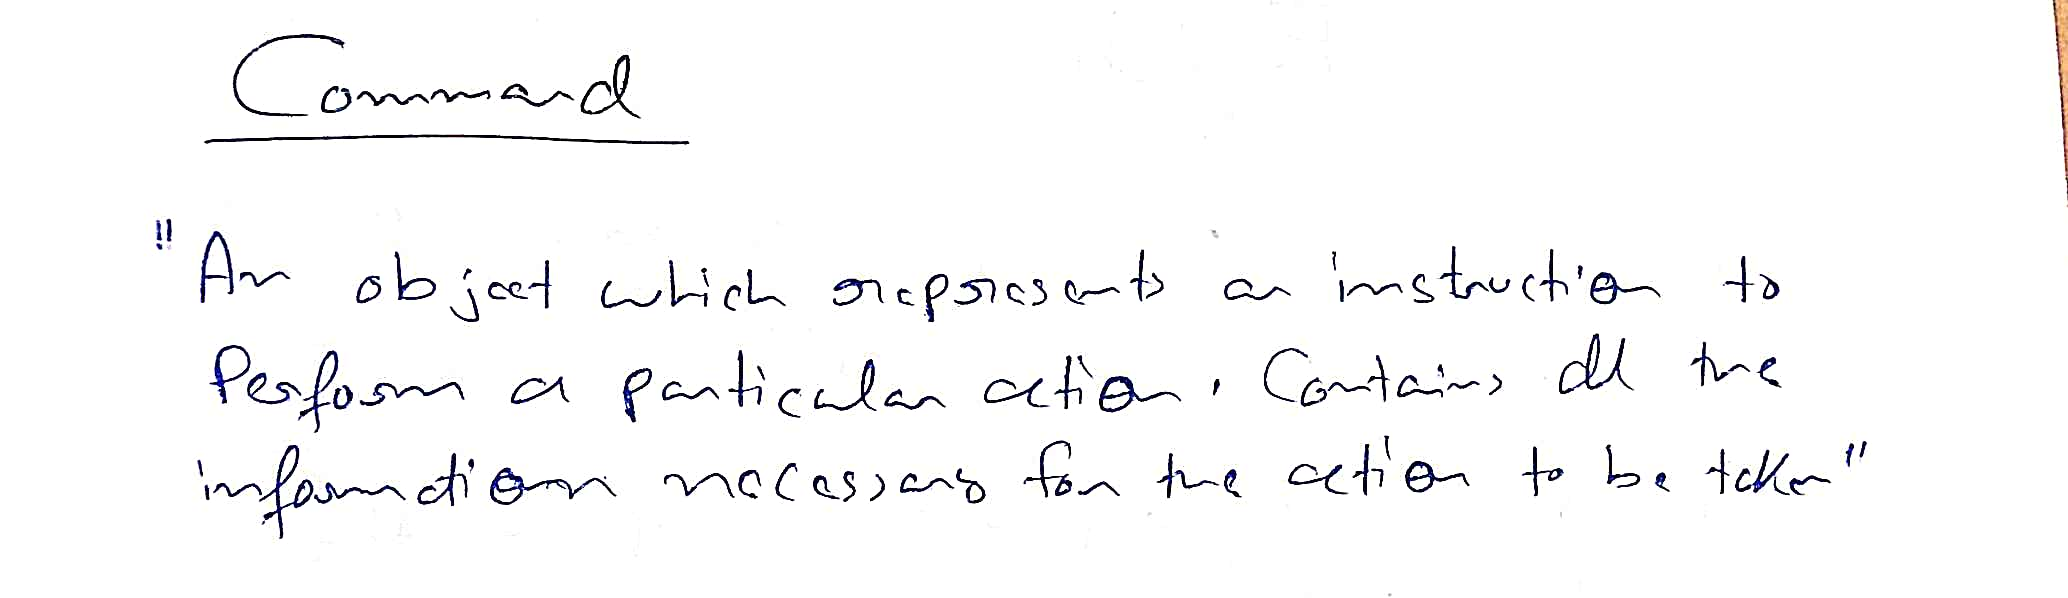 Command
"An object which represents an instruction to
Perform a particular action. Contains all the
information necessary for the action to be taken"